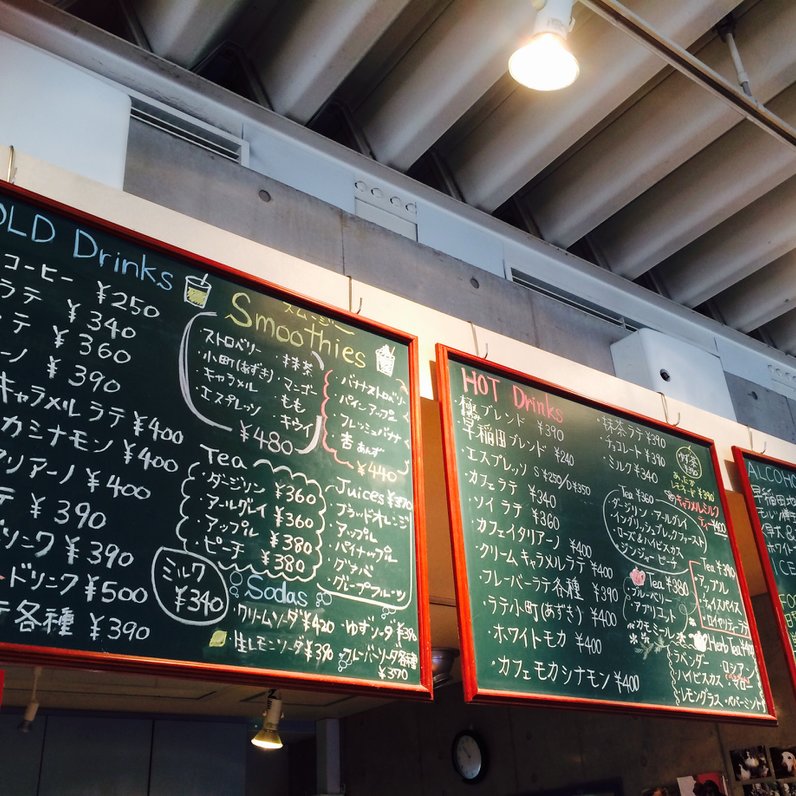 OLD Drinks
コーヒー ¥250
ラテ ¥340
テ ¥360
ーノ ¥390
キャラメル ラテ ¥400
カシナモン ¥400
アリアーノ ¥400
テ ¥390
ソニック ¥390
ドリニク ¥500
テ各種 ¥390
スムージー
Smoothies
・ストロベリー ・抹茶
・小町(あずき)・マンゴー
・キャラメル ・もも
・エスプレッソ ・キウイ
¥480
・バナナストロベリー
・パインアップル
・フレッシュバナナ
・杏 あんず
¥440
Tea
・ダージリン ¥360
・アールグレイ ¥360
・アップル ¥380
・ピーチ ¥380
Juices ¥370
・ブラッドオレンジ
・アップル
・パイナップル
・グァバ
・グレープフルーツ
ミルク
¥340
Sodas
・クリームソーダ ¥420 ・ゆずソーダ ¥390
・生レモンソーダ ¥390 ・フレーバーソーダ各種
¥370
HOT Drinks
・極ブレンド ¥390
・早稲田ブレンド ¥240
・エスプレッソ S¥250/W¥350
・カフェラテ ¥340
・ソイ ラテ ¥360
・カフェイタリアーノ ¥400
・クリームキャラメルラテ ¥400
・フレーバーラテ各種 ¥390
・ラテ小町(あずき) ¥400
・ホワイトモカ ¥400
・カフェモカシナモン ¥400
・抹茶ラテ ¥390
・チョコレート ¥390
・ミルク ¥340
ゆず茶
¥390
キャラメルミルク
ティー ¥400
Tea ¥360
・ダージリン・アールグレイ
・イングリッシュブレックファースト
・ローズ&ハイビスカス
・ジンジャーピーチ
Tea ¥380
・ブルーベリー
・アプリコット
・カモミール
Tea ¥390
・アップル
・チャイスパイス
・ロイヤルティー
Herb Tea ¥390
・ラベンダー ・ローズ
・ハイビスカス ・マロー
・レモングラス ・ペパーミント
ALCOHO
早稲田地